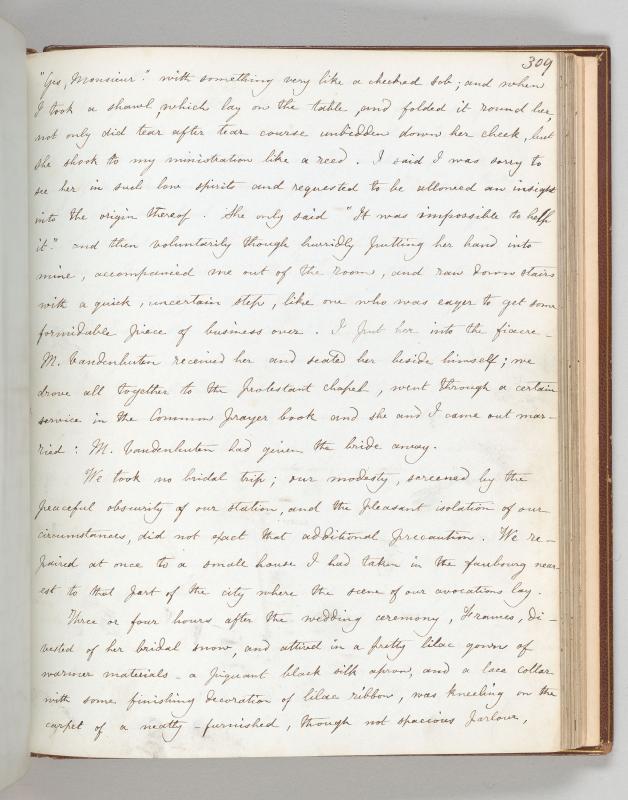 309
"Yes, Monsieur". with something very like a checked sob; and when
I took a shawl, which lay on the table, and folded it round her,
not only did tear after tear course unbidden down her cheek, but
she shook to my ministration like a reed. I said I was sorry to
see her in such low spirits and requested to be allowed an insight
into the origin thereof. She only said "It was impossible to help
it". and then voluntarily though hurridly putting her hand into
mine, accompanied me out of the room, and ran down stairs
with a quick, uncertain step, like one who was eager to get some
formidable piece of business over. I put her into the fiacre -
M. Vandenhuten received her and seated her beside himself; we
drove all together to the Protestant chapel, went through a certain
service in the Common Prayer book and she and I came out mar-
ried: M. Vandenhuten had given the bride away.
We took no bridal trip; our modesty, screened by the
peaceful obscurity of our station, and the pleasant isolation of our
circumstances, did not exact that additional precaution. We re-
paired at once to a small house I had taken in the faubourg near-
est to that part of the city where the scene of our avocations lay.
Three or four hours after the wedding ceremony, Frances, di-
vested of her bridal snow, and attired in a pretty lilac gown of
warmer materials - a piquant black silk apron, and a lace collar
with some finishing decoration of lilac ribbon, was kneeling on the
carpet of a neatly-furnished, though not spacious parlour,